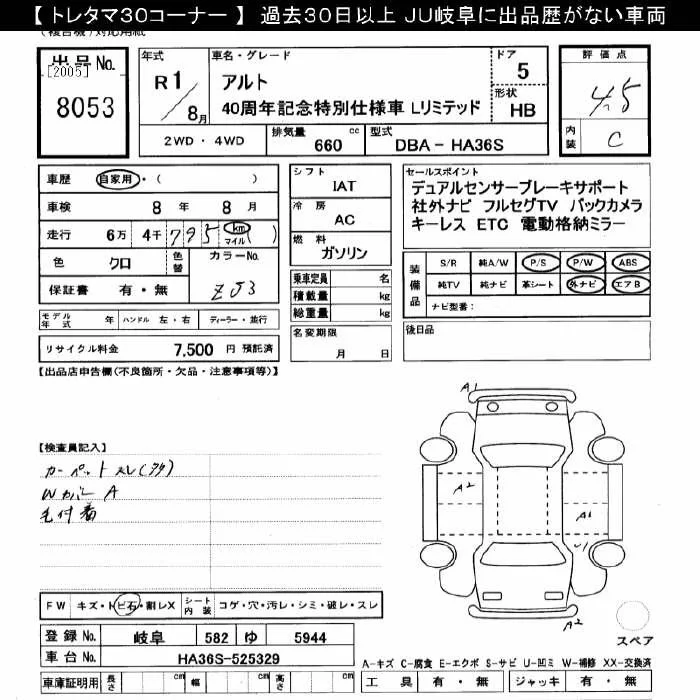 【 トレタマ30コーナー 】 過去30日以上 JU岐阜に出品歴がない車両
出品No.
[2005]
8053
年式
R1/8月
車名・グレード
アルト
40周年記念特別仕様車 Lリミテッド
ドア
5
形状
HB
2WD ・ 4WD
排気量 660 cc
型式 DBA - HA36S
評価点
4.5
内装
C
車歴 自家用・( )
車検 8 年 8 月
走行 6万 4千 795 km マイル ( )
色 クロ 色替 カラーNo.
保証書 有・無 ZJ3
モデル年式 年 ハンドル 左・右 ディーラー・並行
リサイクル料金 7,500 円 預託済
シフト
IAT
冷房
AC
燃料
ガソリン
乗車定員 名
積載量 kg
総重量 kg
名変期限
月 日
セールスポイント
デュアルセンサーブレーキサポート
社外ナビ フルセグTV バックカメラ
キーレス ETC 電動格納ミラー
装備品
S/R 純A/W P/S P/W ABS
純TV 純ナビ 革シート 外ナビ エアB
ナビ型番:
後日品
【出品店申告欄(不良箇所・欠品・注意事項等)】
【検査員記入】
カーペットスレ(多)
Wカバー A
毛付着
A1
A2
A1
U1
A2
スペア
FW キズ・トビ石・割レX シート内装 コゲ・穴・汚レ・シミ・破レ・スレ
登録No. 岐阜 582 ゆ 5944
車台No. HA36S-525329
車庫証明用 長さ cm 幅 cm 高さ cm
A-キズ C-腐食 E-エクボ S-サビ U-凹ミ W-補修 XX-交換済
工具 有・無 ジャッキ 有・無